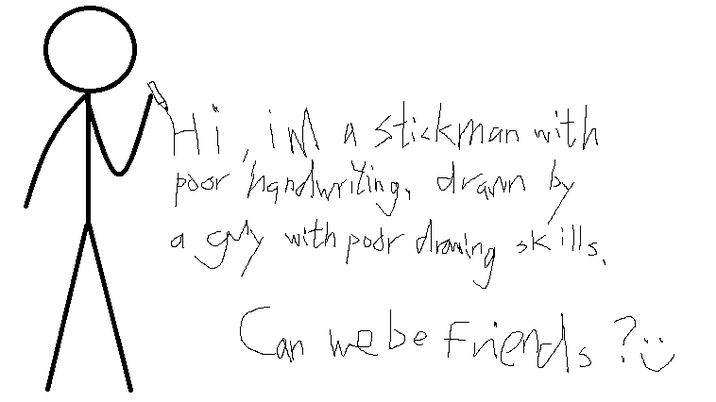 Hi, im a stickman with
poor handwriting, drawn by
a guy with poor drawing skills.
Can we be Friends ? :)